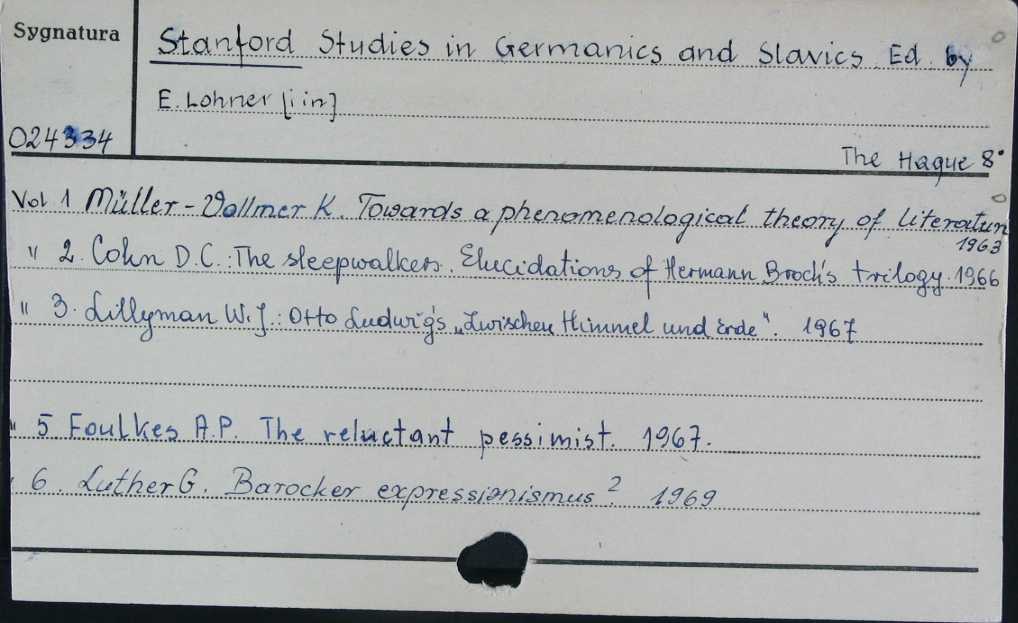 Sygnatura
Stanford Studies in Germanics and Slavics. Ed. by
E. Lohner [i in]
024334
The Hague 8°
Vol 1 Müller-Vollmer K. Towards a phenomenological theory of literatur
1963
" 2. Cohn D.C.: The sleepwalkers. Elucidations of Hermann Broch's trilogy. 1966
" 3. Lillyman W.J.: Otto Ludwig's „Zwischen Himmel und Erde". 1967
" 5 Foulkes A.P. The reluctant pessimist. 1967.
6. Luther G. Barocker expressionismus? 1969